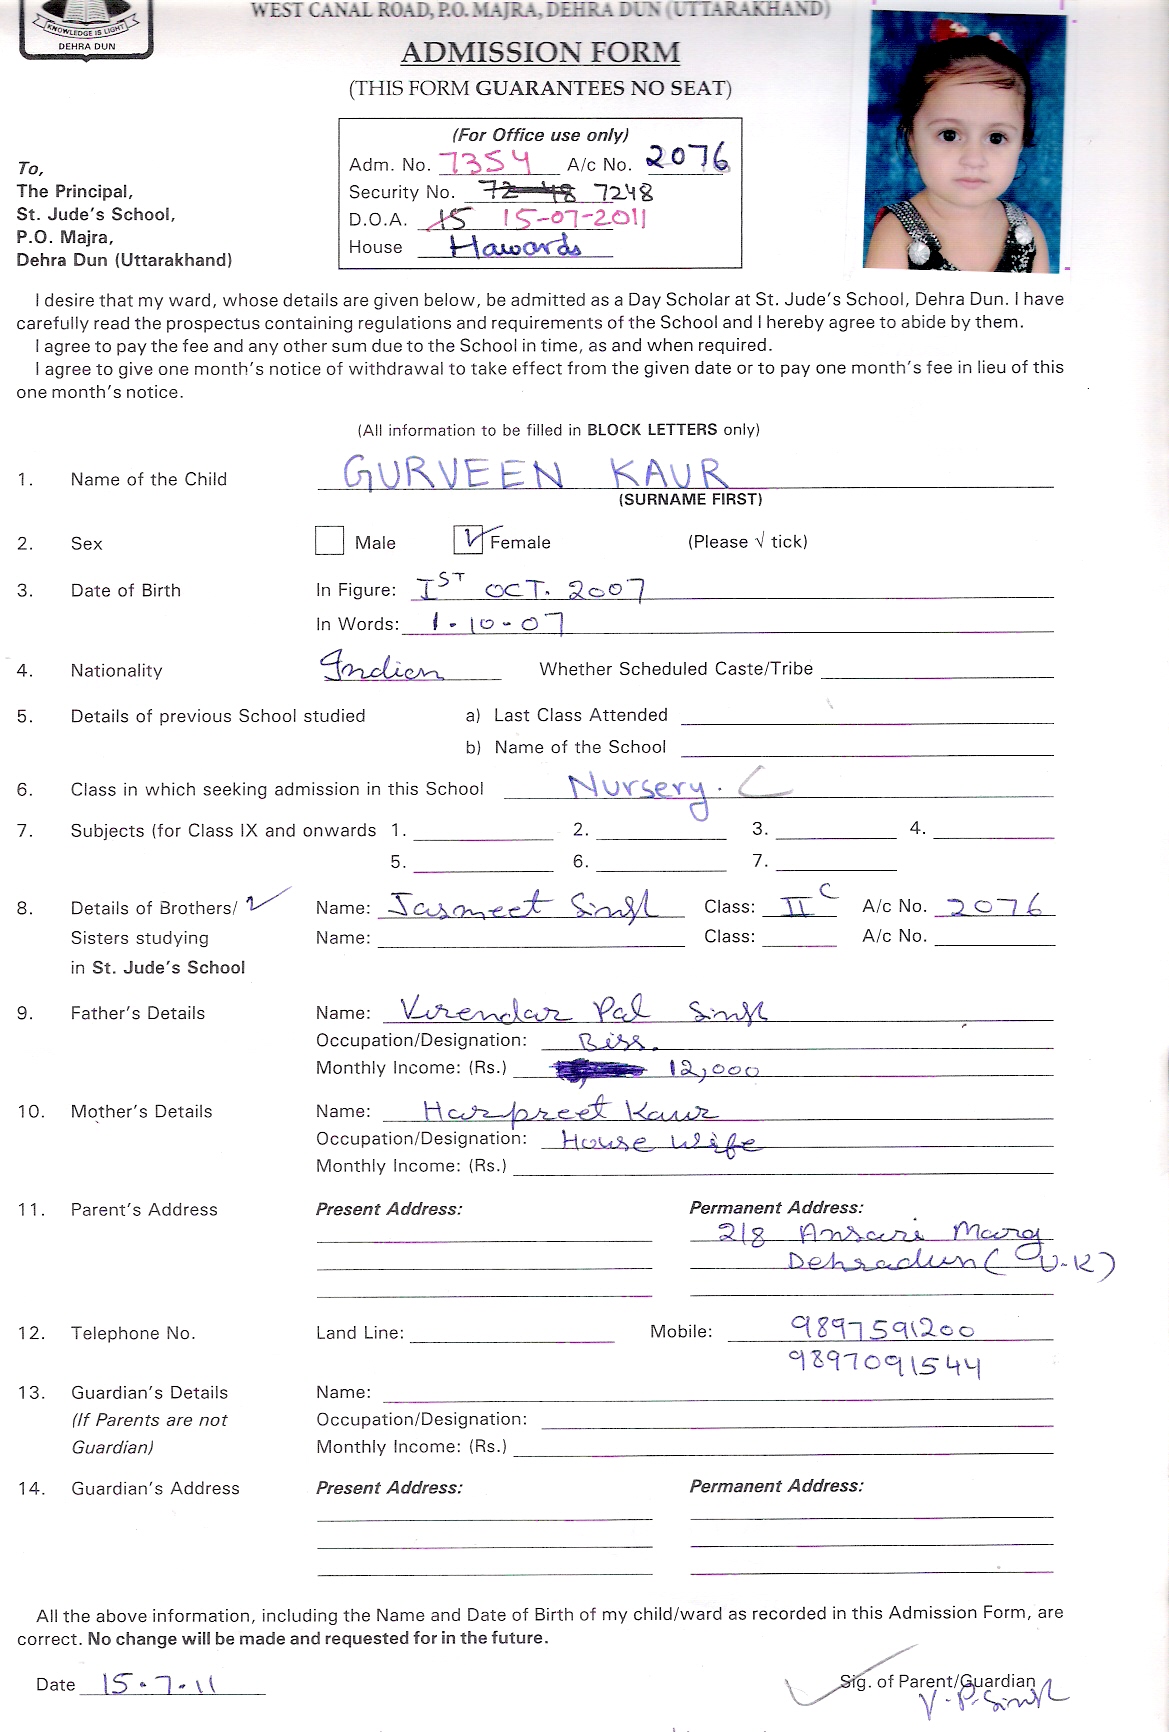 WEST CANAL ROAD, P.O. MAJRA, DEHRA DUN (UTTARAKHAND)
KNOWLEDGE IS LIGHT
DEHRA DUN
ADMISSION FORM
(THIS FORM GUARANTEES NO SEAT)
(For Office use only)
Adm. No. 7354 A/c No. 2076
Security No. 72 48 7248
D.O.A. 15 15-07-2011
House Hawards
To,
The Principal,
St. Jude's School,
P.O. Majra,
Dehra Dun (Uttarakhand)
I desire that my ward, whose details are given below, be admitted as a Day Scholar at St. Jude's School, Dehra Dun. I have
carefully read the prospectus containing regulations and requirements of the School and I hereby agree to abide by them.
I agree to pay the fee and any other sum due to the School in time, as and when required.
I agree to give one month's notice of withdrawal to take effect from the given date or to pay one month's fee in lieu of this
one month's notice.
(All information to be filled in BLOCK LETTERS only)
1. Name of the Child GURVEEN KAUR
(SURNAME FIRST)
2. Sex Male Female (Please √ tick)
3. Date of Birth In Figure: IST OCT. 2007
In Words: 1-10-07
4. Nationality Indian Whether Scheduled Caste/Tribe
5. Details of previous School studied a) Last Class Attended
b) Name of the School
6. Class in which seeking admission in this School Nursery. C
7. Subjects (for Class IX and onwards 1. 2. 3. 4.
5. 6. 7.
8. Details of Brothers/ Name: Jasmeet Singh Class: II C A/c No. 2076
Sisters studying Name: Class: A/c No.
in St. Jude's School
9. Father's Details Name: Virendar Pal Singh
Occupation/Designation: Biss.
Monthly Income: (Rs.) 12,000
10. Mother's Details Name: Harpreet Kaur
Occupation/Designation: House Wife
Monthly Income: (Rs.)
11. Parent's Address Present Address: Permanent Address:
218 Ansari Marg
Dehradun (U-K)
12. Telephone No. Land Line: Mobile: 9897591200
9897091544
13. Guardian's Details Name:
(If Parents are not Occupation/Designation:
Guardian) Monthly Income: (Rs.)
14. Guardian's Address Present Address: Permanent Address:
All the above information, including the Name and Date of Birth of my child/ward as recorded in this Admission Form, are
correct. No change will be made and requested for in the future.
Date 15-7-11 Sig. of Parent/Guardian
V.P. Singh